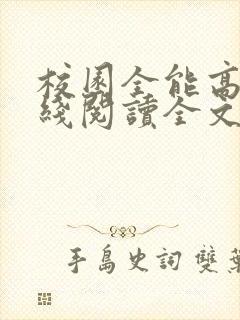 校園全能高
綫閱讀全文
手島史詞 雙葉